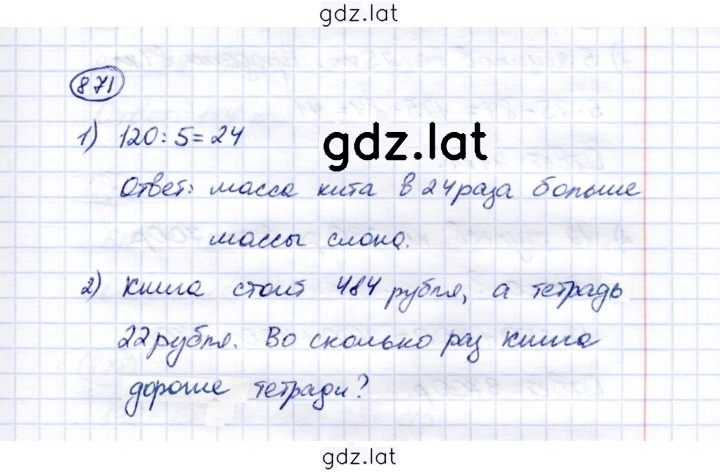 gdz.lat
871
1) 120:5=24
gdz.lat
Ответ: масса кита в 24 раза больше
массы слона.
2) Книга стоит 484 рубля, а тетрадь
22 рубля. Во сколько раз книга
дороже тетради?
gdz.lat